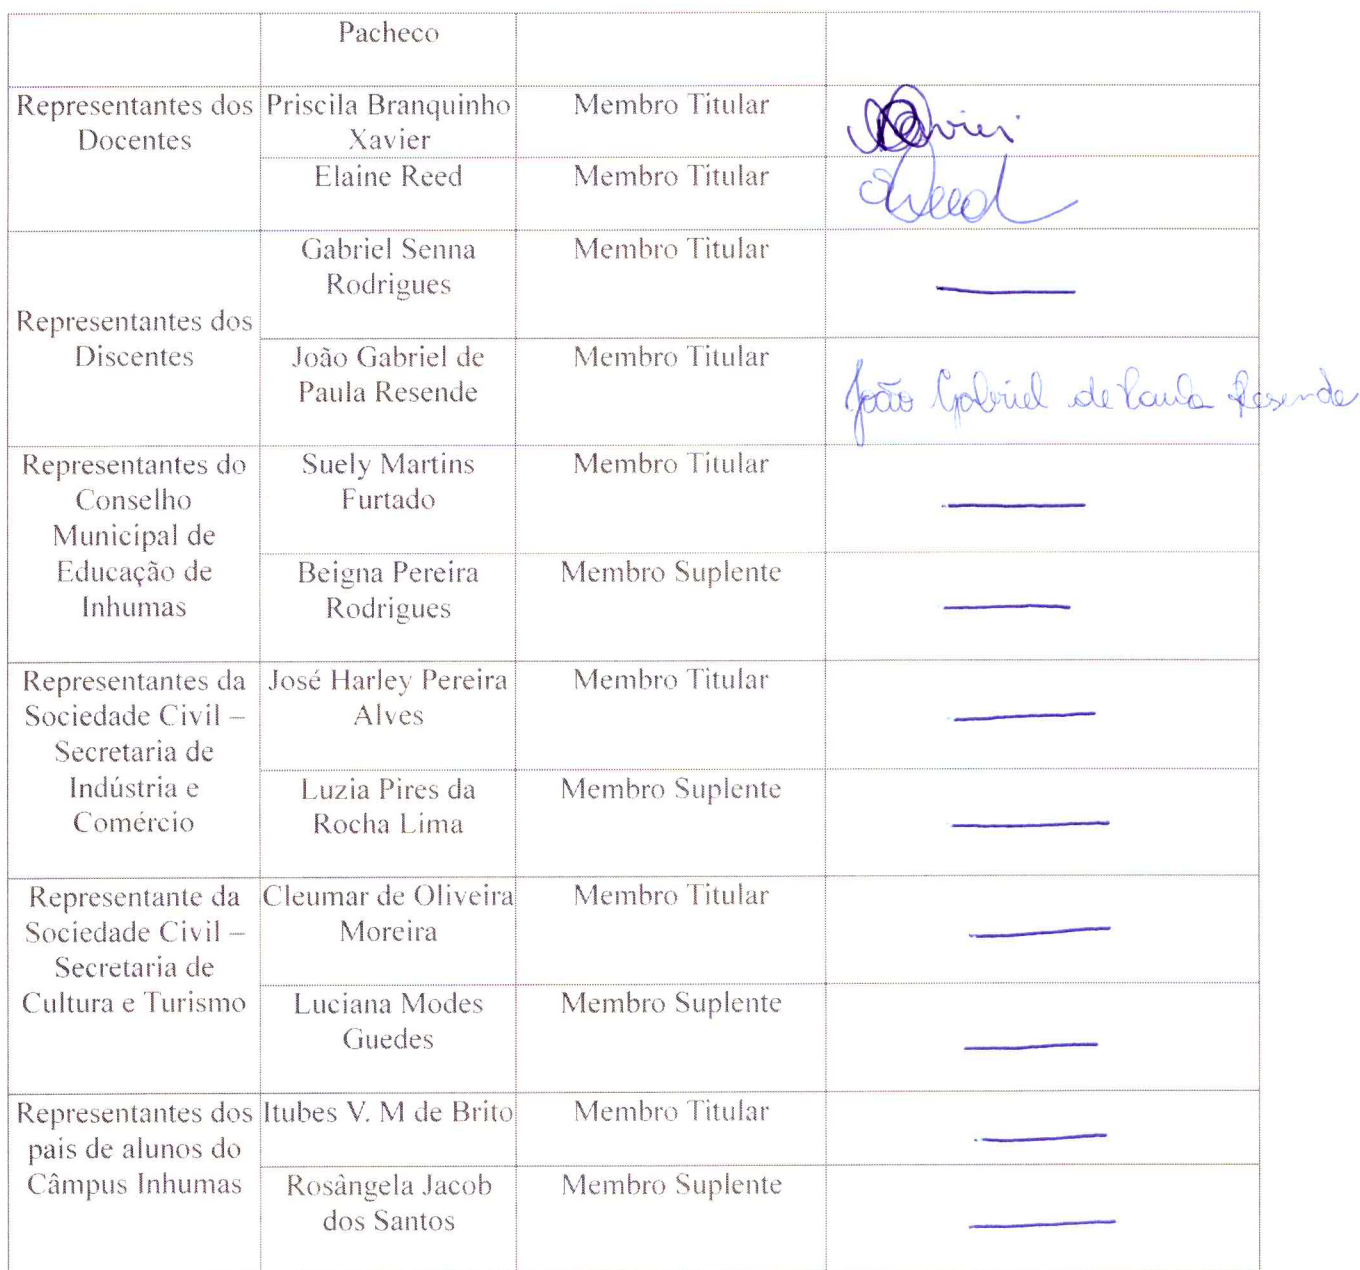 Pacheco
Representantes dos
Docentes
Priscila Branquinho
Xavier
Membro Titular
Xavier
Elaine Reed
Membro Titular
EReed
Representantes dos
Discentes
Gabriel Senna
Rodrigues
Membro Titular
João Gabriel de
Paula Resende
Membro Titular
João Gabriel de Paula Resende
Representantes do
Conselho
Municipal de
Educação de
Inhumas
Suely Martins
Furtado
Membro Titular
Beigna Pereira
Rodrigues
Membro Suplente
Representantes da
Sociedade Civil –
Secretaria de
Indústria e
Comércio
José Harley Pereira
Alves
Membro Titular
Luzia Pires da
Rocha Lima
Membro Suplente
Representante da
Sociedade Civil –
Secretaria de
Cultura e Turismo
Cleumar de Oliveira
Moreira
Membro Titular
Luciana Modes
Guedes
Membro Suplente
Representantes dos
pais de alunos do
Câmpus Inhumas
Itubes V. M de Brito
Membro Titular
Rosângela Jacob
dos Santos
Membro Suplente